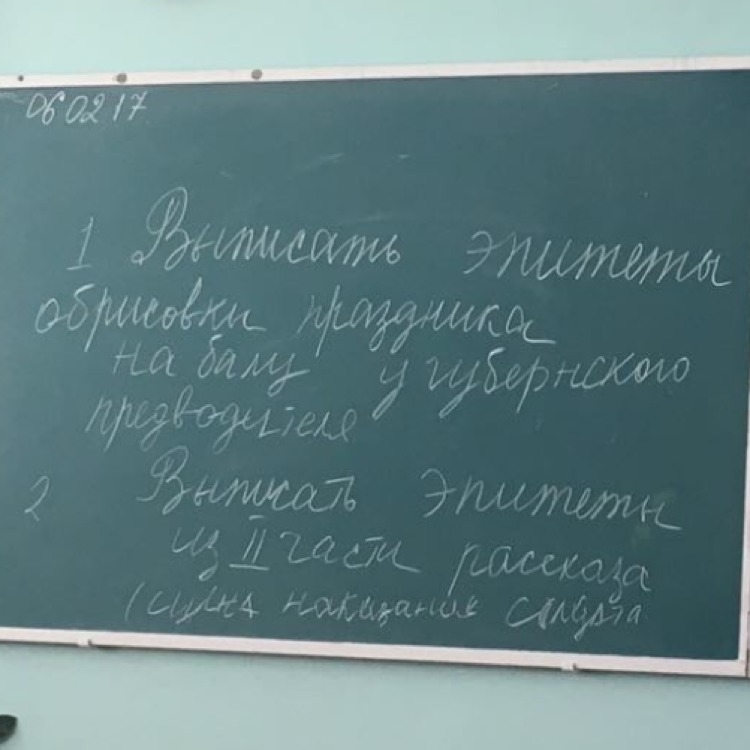 06 02 17
1 Выписать эпитеты
обрисовки праздника
на балу у губернского
предводителя
2 Выписать эпитеты
из II части рассказа
(сцена наказание солдата